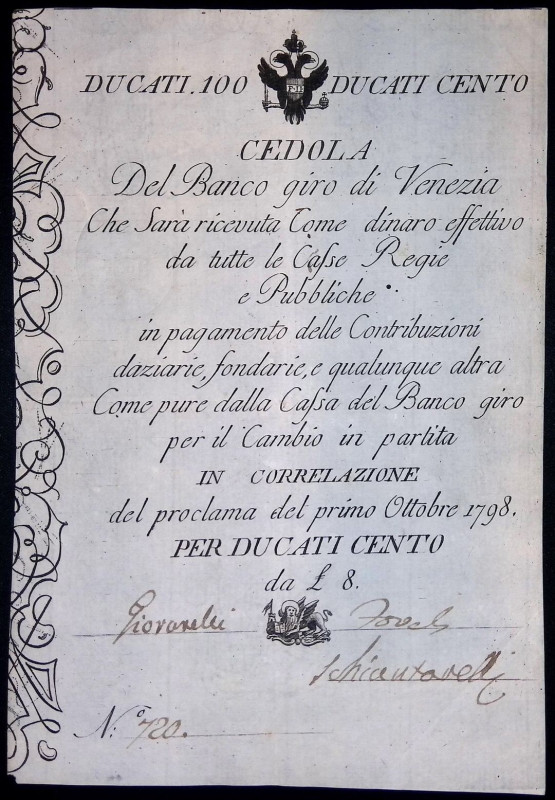 DUCATI.100 DUCATI CENTO
CEDOLA
Del Banco giro di Venezia
Che Sarà ricevuta Come dinaro effettivo
da tutte le Casse Regie
e Pubbliche
in pagamento delle Contribuzioni
daziarie, fondarie, e qualunque altra
Come pure dalla Cassa del Banco giro
per il Cambio in partita
IN CORRELAZIONE
del proclama del primo Ottobre 1798.
PER DUCATI CENTO
da £ 8.
Giovanelli
Schiantarelli
N.º 720.